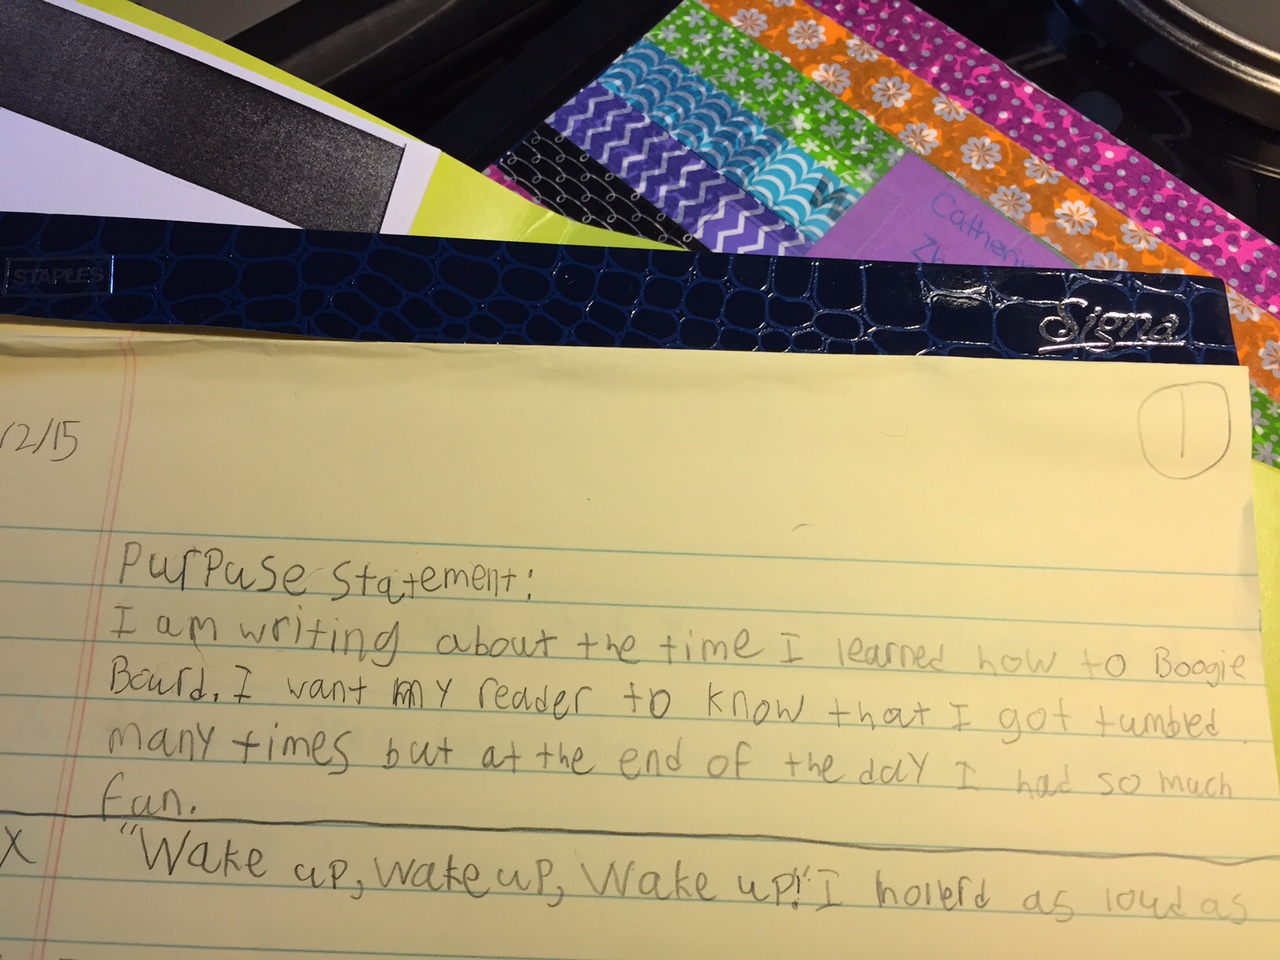 Catherin
Zh
STAPLES
Signa
12/15
1
Purpuse Statement:
I am writing about the time I learned how to Boogie
Board. I want my reader to know that I got tumbed
many times but at the end of the day I had so much
fun.
X "Wake up, Wake up, Wake up!" I hollerd as loud as